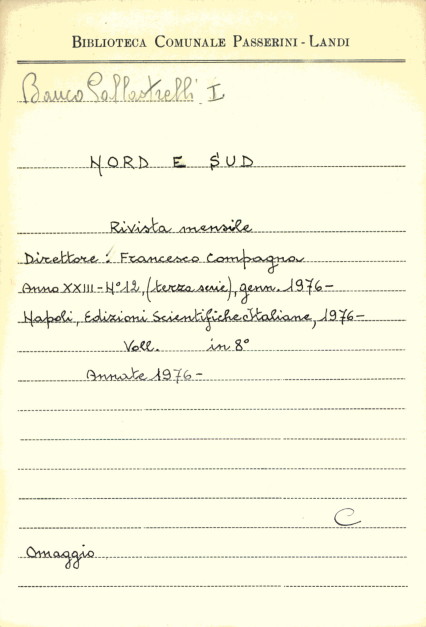 BIBLIOTECA COMUNALE PASSERINI - LANDI
Banco Pallastrelli I
NORD E SUD
Rivista mensile
Direttore: Francesco Compagna
Anno XXIII - N° 12, (terza serie), genn. 1976 -
Napoli, Edizioni Scientifiche Italiane, 1976 -
Voll. in 8°
Annate 1976 -
C
Omaggio